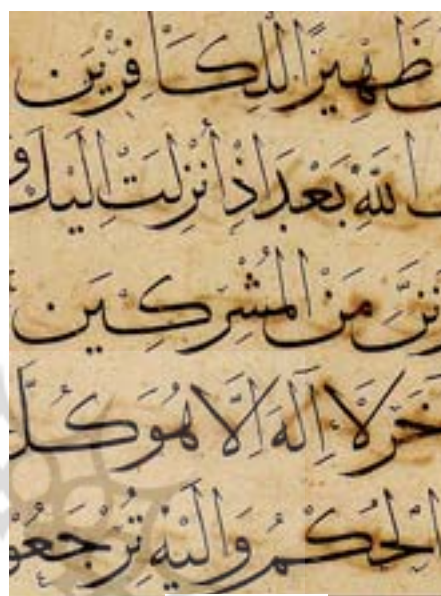 ظَهِيرًا لِلْكَافِرِينَ
اللهِ بَعْدَ إِذْ أُنْزِلَتْ إِلَيْكَ وَ
مِنَ الْمُشْرِكِينَ
لَا إِلَهَ إِلَّا هُوَ كُلُّ
الْحُكْمُ وَإِلَيْهِ